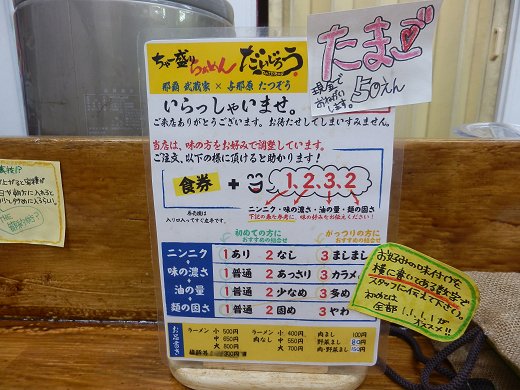 ちゃー盛り らぁめん だいじろう
那覇 武蔵家 × 与那原 たつぞう
いらっしゃいませ。
ご来店ありがとうございます。お待たせしてしまいすみません。
当店は、味の方をお好みで調整しています。
ご注文、以下の様に頂けると助かります！
食券 + 1,2,3,2
ニンニク・味の濃さ・油の量・麺の固さ
下記の表を参考に、味の好みをお伝えください！
券売機は
入り口入ってすぐ左手です。
初めての方に
おすすめの組合せ
がっつりの方に
おすすめの組合せ
ニンニク 1あり 2なし 3ましまし
+
味の濃さ 1普通 2あっさり 3カラメ
+
油の量 1普通 2少なめ 3多め
+
麺の固さ 1普通 2固め 3やわ
お品書き
ラーメン 小 500円 ラーメン 小 400円 肉まし 100円
中 650円 肉なし 中 550円 野菜まし
大 800円 大 700円 肉・野菜まし
たまご
現金で
おねがい
します。
50えん
お好みの味付けを
横に書いてある数字で
スタッフに伝えて下さい。
初めては
全部 1.1.1.1が
オススメ!!